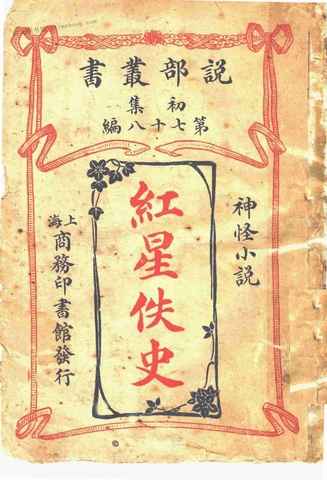 説部叢書
初集
第七十八編
神怪小説
紅星佚史
上海
商務印書館發行